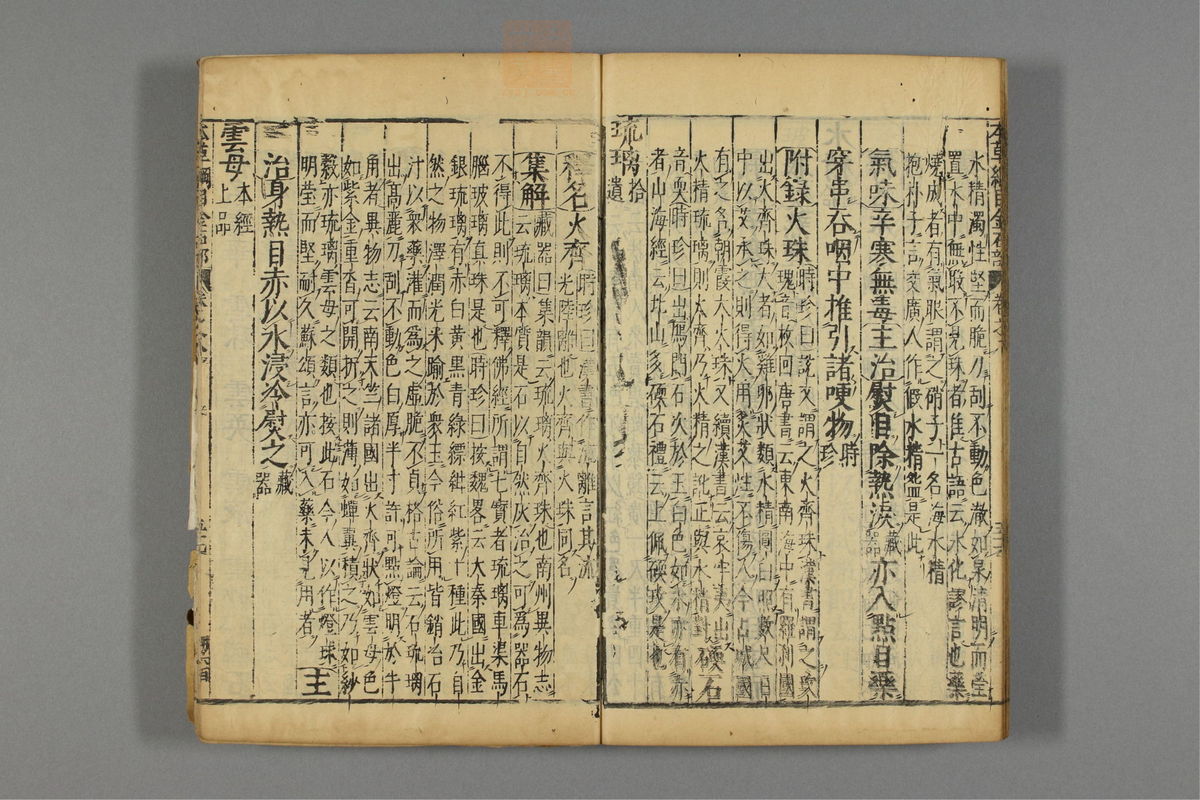 水精濁性堅而脆刀刮不動色澈如泉清明而瑩
置水中無瑕不見珠者佳古語云水化謬言也藥
燒成者有氣眼謂之硝子一名海水精
抱朴子言交廣人作假水精盌是此
氣味辛寒無毒主治熨目除熱淚藏器亦入點目藥
穿串吞咽中推引諸哽物時珍
附錄火珠時珍曰說文謂之火齊珠漢書謂之
瑰音枚回唐書云東南海中有羅刹國
出火齊珠大者如雞卵狀類水精圓白照數尺日
中以艾承之則得火用灸艾炷不傷人今占城國
有之名朝霞大火珠又續漢書云哀牢夷出
火精琉璃則火齊乃火精之訛正與水精對 礝石
音耎時珍曰出鴈門石次於玉白色如冰亦有赤
者山海經云北山多礝石禮云士佩礝玟是也
琉璃拾遺
釋名火齊時珍曰漢書作流離言其流
光陸離也火齊與火珠同名
集解藏器曰集韻云琉璃火齊珠也南州異物志
云琉璃本質是石以自然灰治之可爲器石
不得此則不可釋佛經所謂七寶者琉璃車渠馬
腦玻璃真珠是也時珍曰按魏畧云大秦國出金
銀琉璃有赤白黃黑青綠縹紺紅紫十種此乃自
然之物澤潤光采踰於衆玉今俗所用皆銷冶石
汁以衆藥灌而爲之虛脆不貞格古論云石琉璃
出高麗刀刮不動色白厚半寸許可點燈明於牛
角者異物志云南天竺諸國出火齊狀如雲母色
如紫金重沓可開折之則薄如蟬翼積之乃如紗
縠亦琉璃雲母之類也按此石今人以作燈珠
明堂而堅耐久蘇頌言亦可入藥未見用者 主
治身熱目赤以水浸冷熨之藏器
雲母本經上品